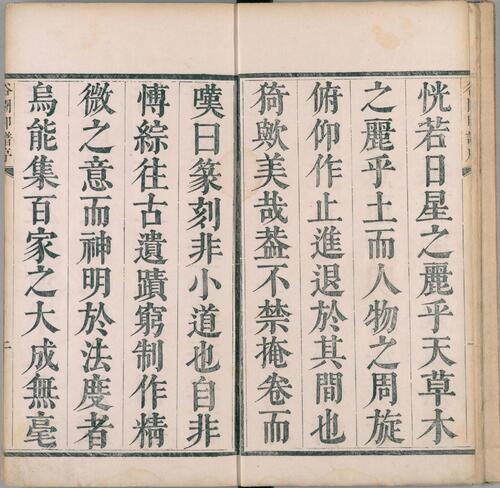 恍若日星之麗乎天草木
之麗乎土而人物之周旋
俯仰作止進退於其間也
猗歟美哉葢不禁掩卷而
嘆曰篆刻非小道也自非
博綜往古遺蹟窮制作精
微之意而神明於法度者
烏能集百家之大成無毫